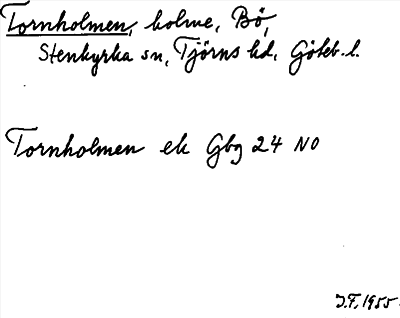 Tornholmen, holme, Bö,
Stenkyrka sn, Tjörns hd, Göteb. l.
Tornholmen ek Gbg 24 NO
J.F. 1955